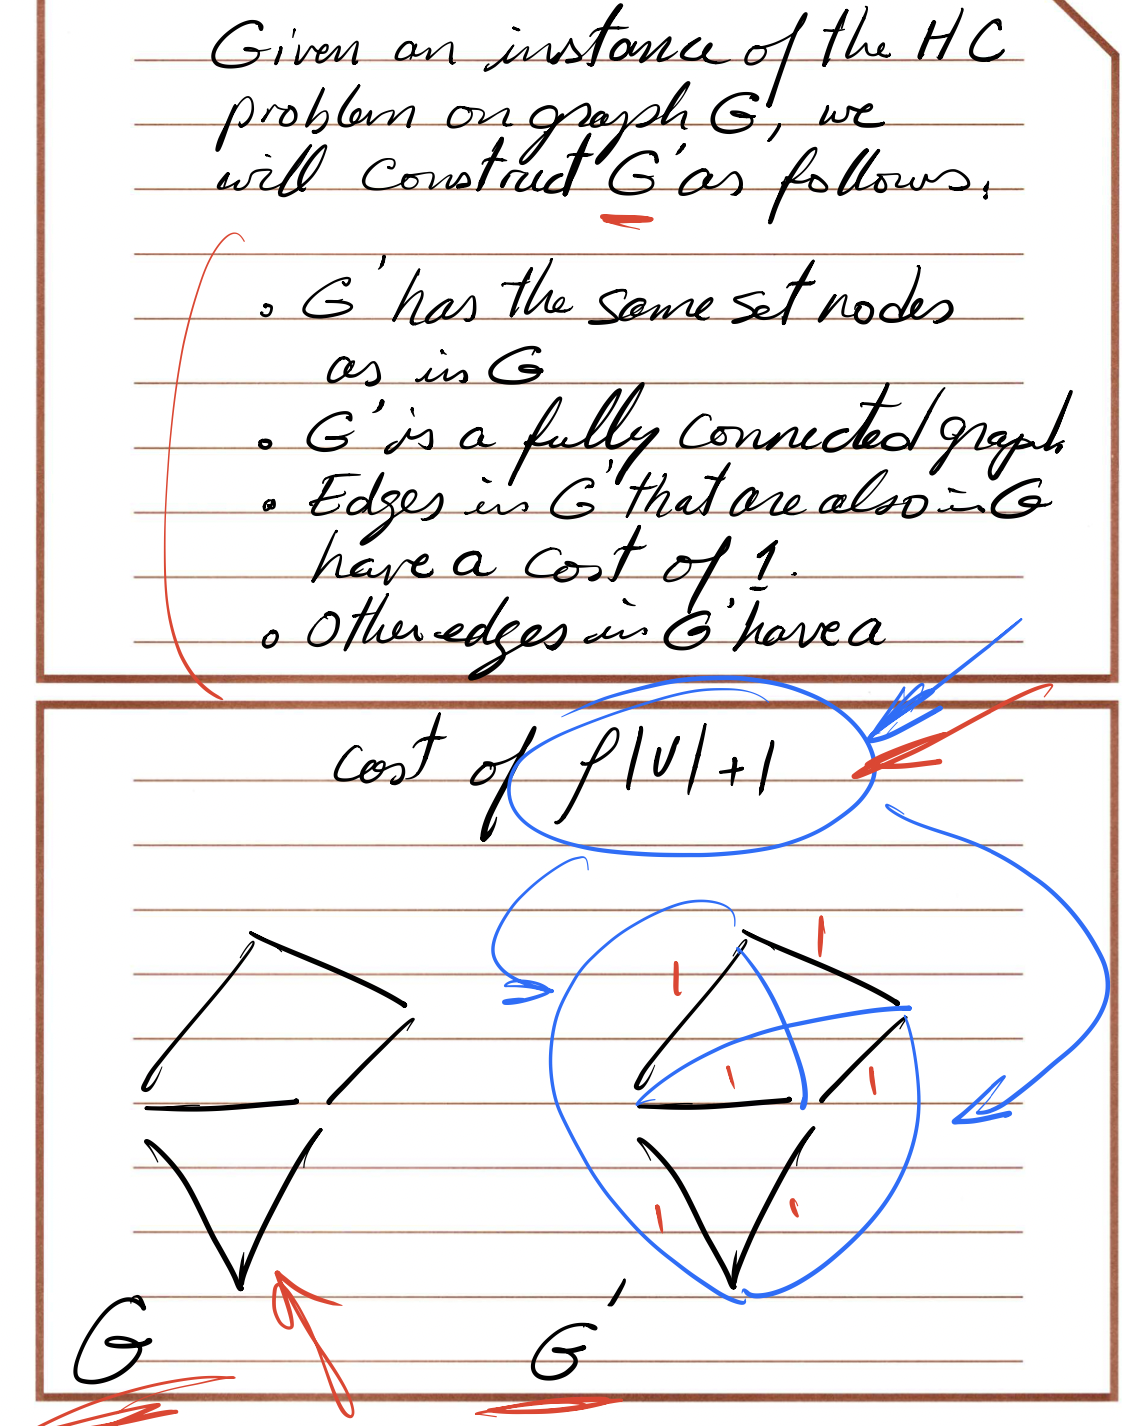 Given an instance of the HC
problem on graph G, we
will construct G' as follows.
• G' has the same set nodes
as in G
• G' is a fully connected graph
• Edges in G' that are also in G
have a cost of 1.
• Other edges in G' have a
cost of ρ|V|+1
1 1
1 1
1 1
G G'